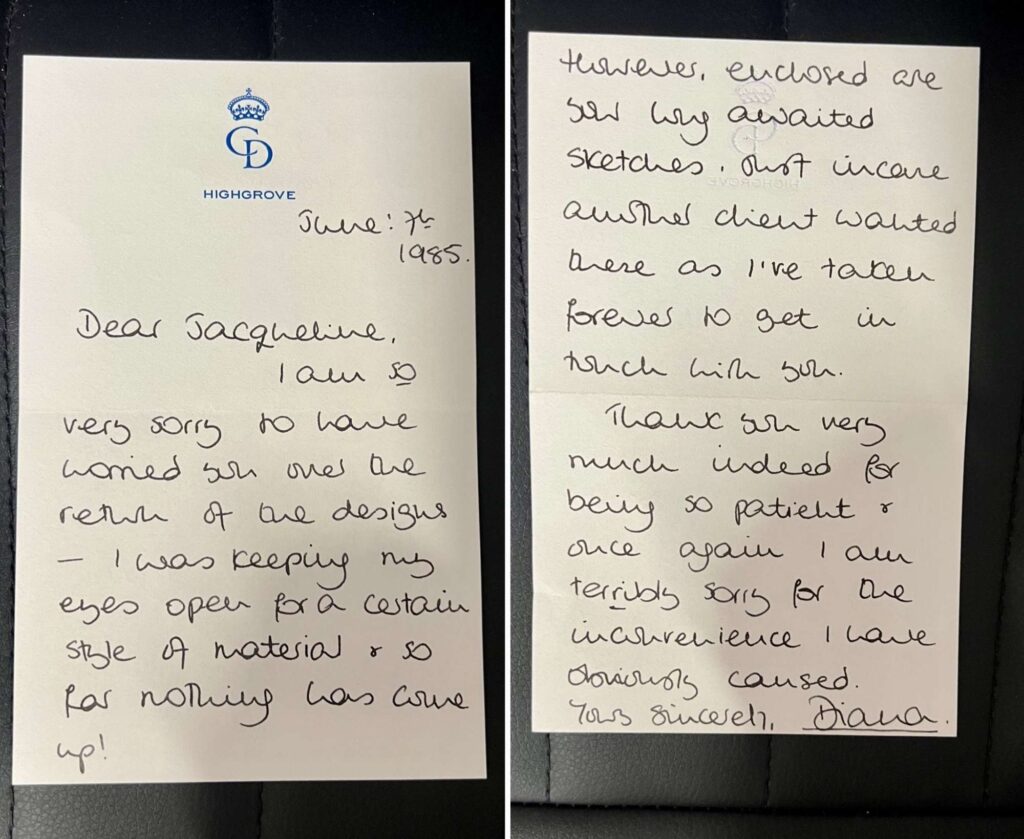 CD
HIGHGROVE
June: 7th
1985.
Dear Jacqueline,
I am so
very sorry to have
worried you over the
return of the designs
— I was keeping my
eyes open for a certain
style of material & so
far nothing has come
up!
However, enclosed are
your long awaited
sketches, just incase
another client wanted
these as I've taken
forever to get in
touch with you.
Thank you very
much indeed for
being so patient &
once again I am
terribly sorry for the
inconvenience I have
obviously caused.
Yours sincerely, Diana.